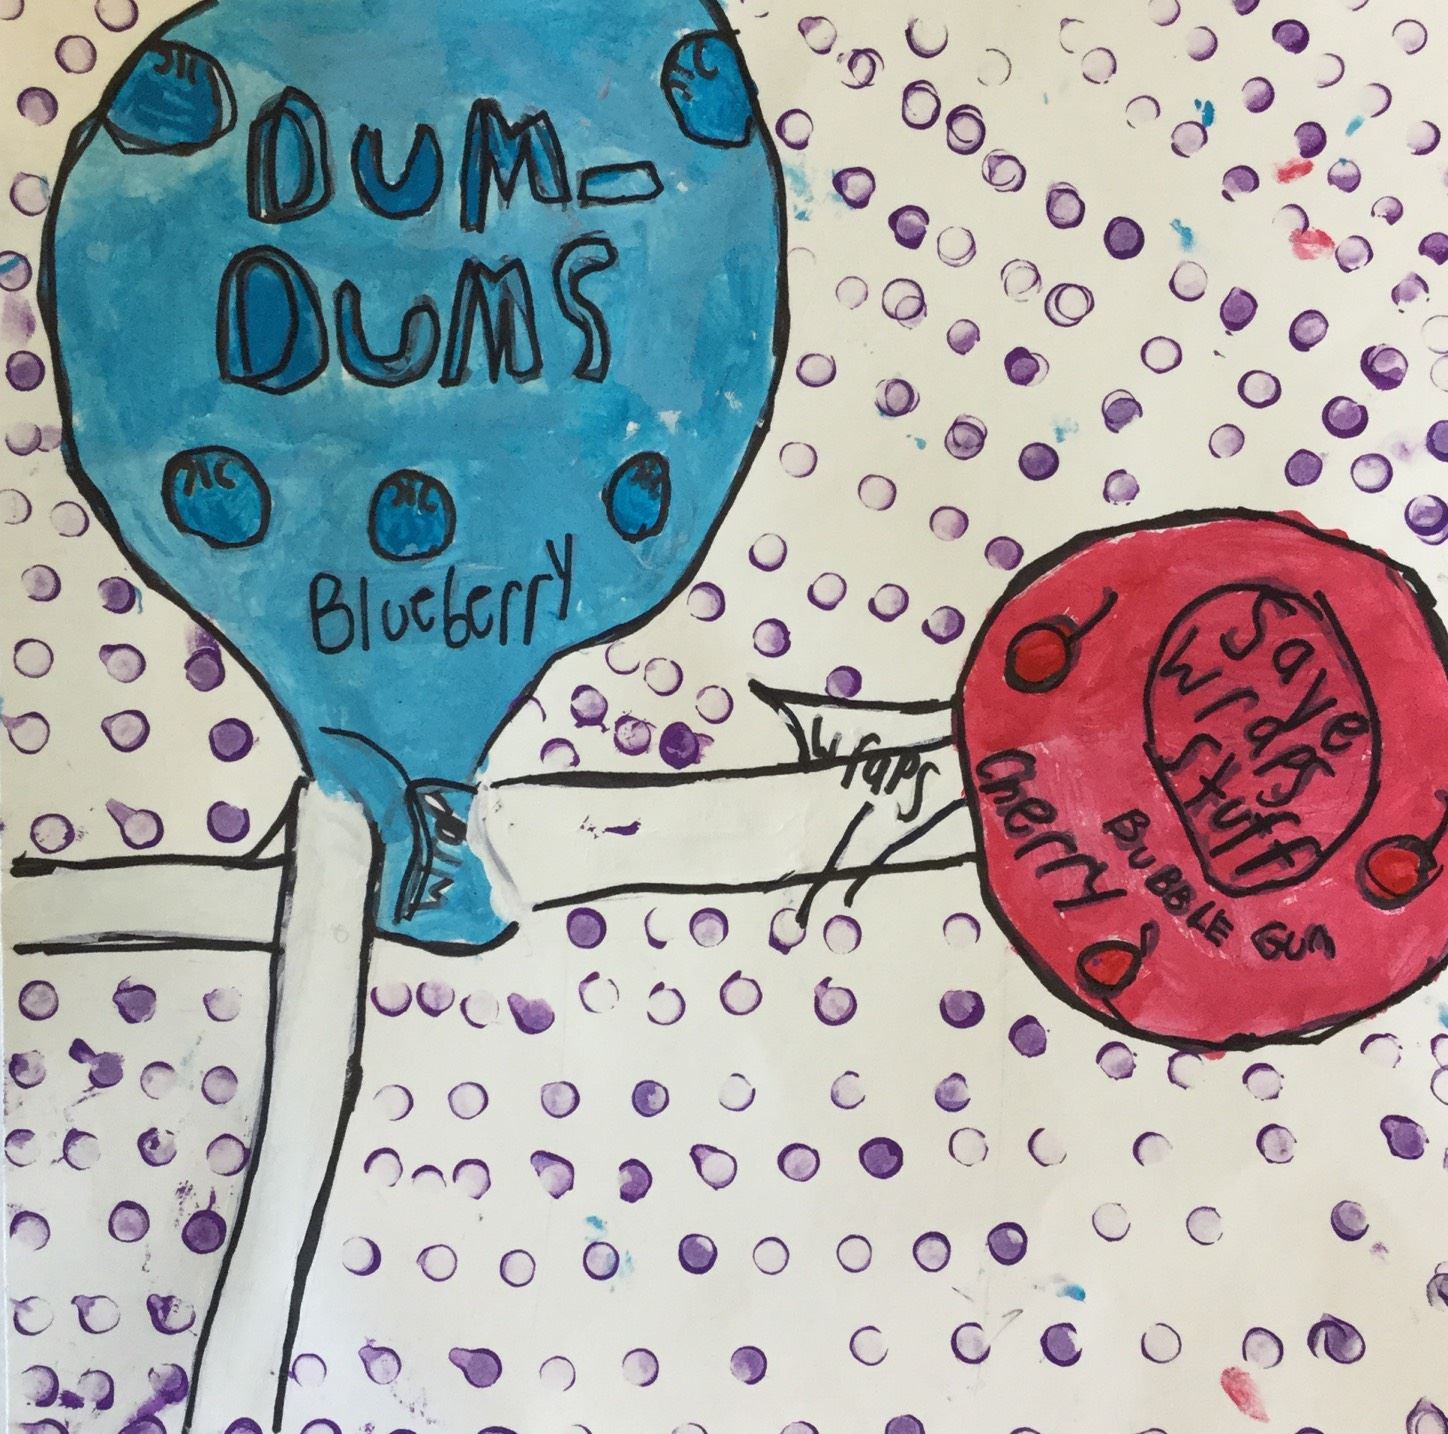 DUM-
DUMS
Blueberry
wraps
Save
wraps
stuff
Cherry
BUBBLE GUM